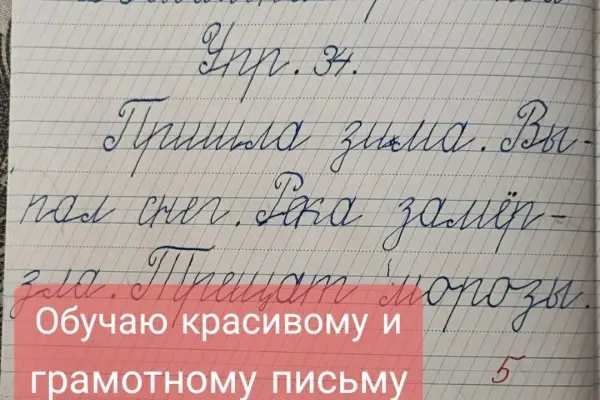 Упр. 34.
Пришла зима. Вы-
пал снег. Река замёр-
зла. Трещат морозы.
Обучаю красивому и
грамотному письму
5